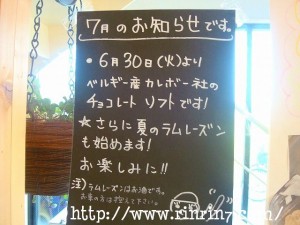 7月のお知らせです。
• 6月30日(火)より
ベルギー産カレボー社の
チョコレートソフトです!
★さらに夏のラムレーズン
も始めます!
お楽しみに!!
注)ラムレーズンはお酒です。
お車の方は控えて下さい。
http://www.rinrin7.com/